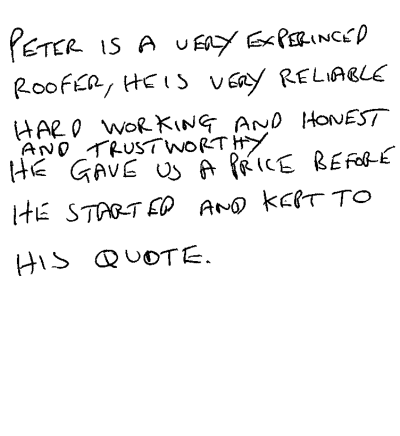 PETER IS A VERY EXPERINCED
ROOFER, HE IS VERY RELIABLE
HARD WORKING AND HONEST
AND TRUSTWORTHY
HE GAVE US A PRICE BEFORE
HE STARTED AND KEPT TO
HIS QUOTE.